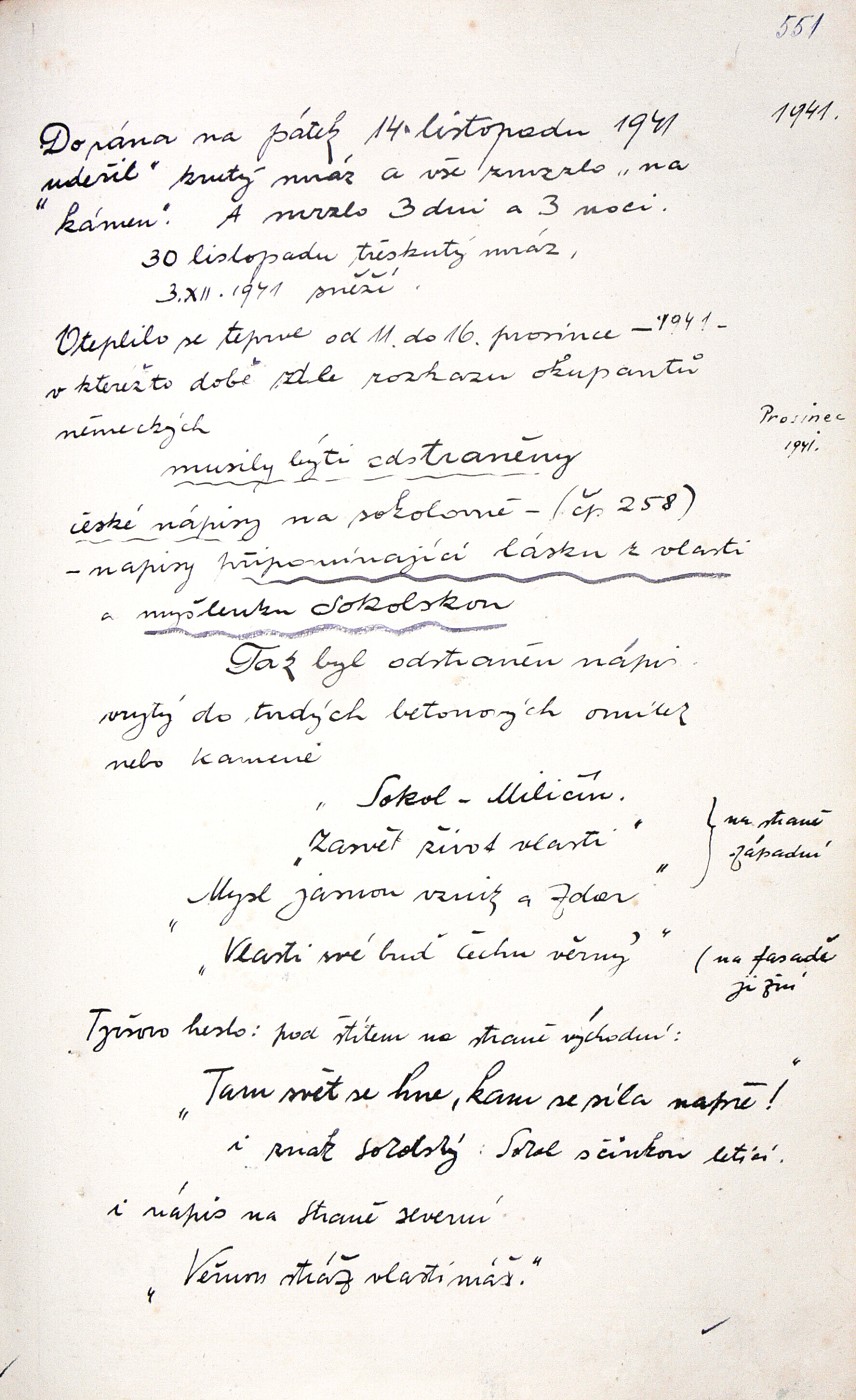 551
1941.
Do rána na pátek 14. listopadu 1941
„udeřil" krutý mráz a vše zmrzlo „na
kámen". A mrzlo 3 dni a 3 noci.
30 listopadu třeskutý mráz,
3.XII.1941 sněží.
Oteplilo se teprve od 11. do 16. prosince – 1941 –
v kteréžto době zdle rozkazu okupantů
německých
Prosinec
1941.
musily býti odstraněny
české nápisy na sokolovně – (čp. 258)
– nápisy připomínající lásku k vlasti
a myšlenku Sokolskou
Tak byl odstraněn nápis
vrytý do tvrdých betonových omítek
nebo kamene
„Sokol – Miličín.
„Zasvěť život vlasti"
„Mysl jasnou vznik a zdar"
} na straně
západní
„Vlasti své buď čechu věrný"
(na fasadě
jižní
Tyršovo heslo: pod štítem na straně východní:
„Tam svět se hne, kam se síla napře!"
i znak sokolský: Sokol s činkou letící.
i nápis na straně severní
„Věrnou stráž vlasti máš."